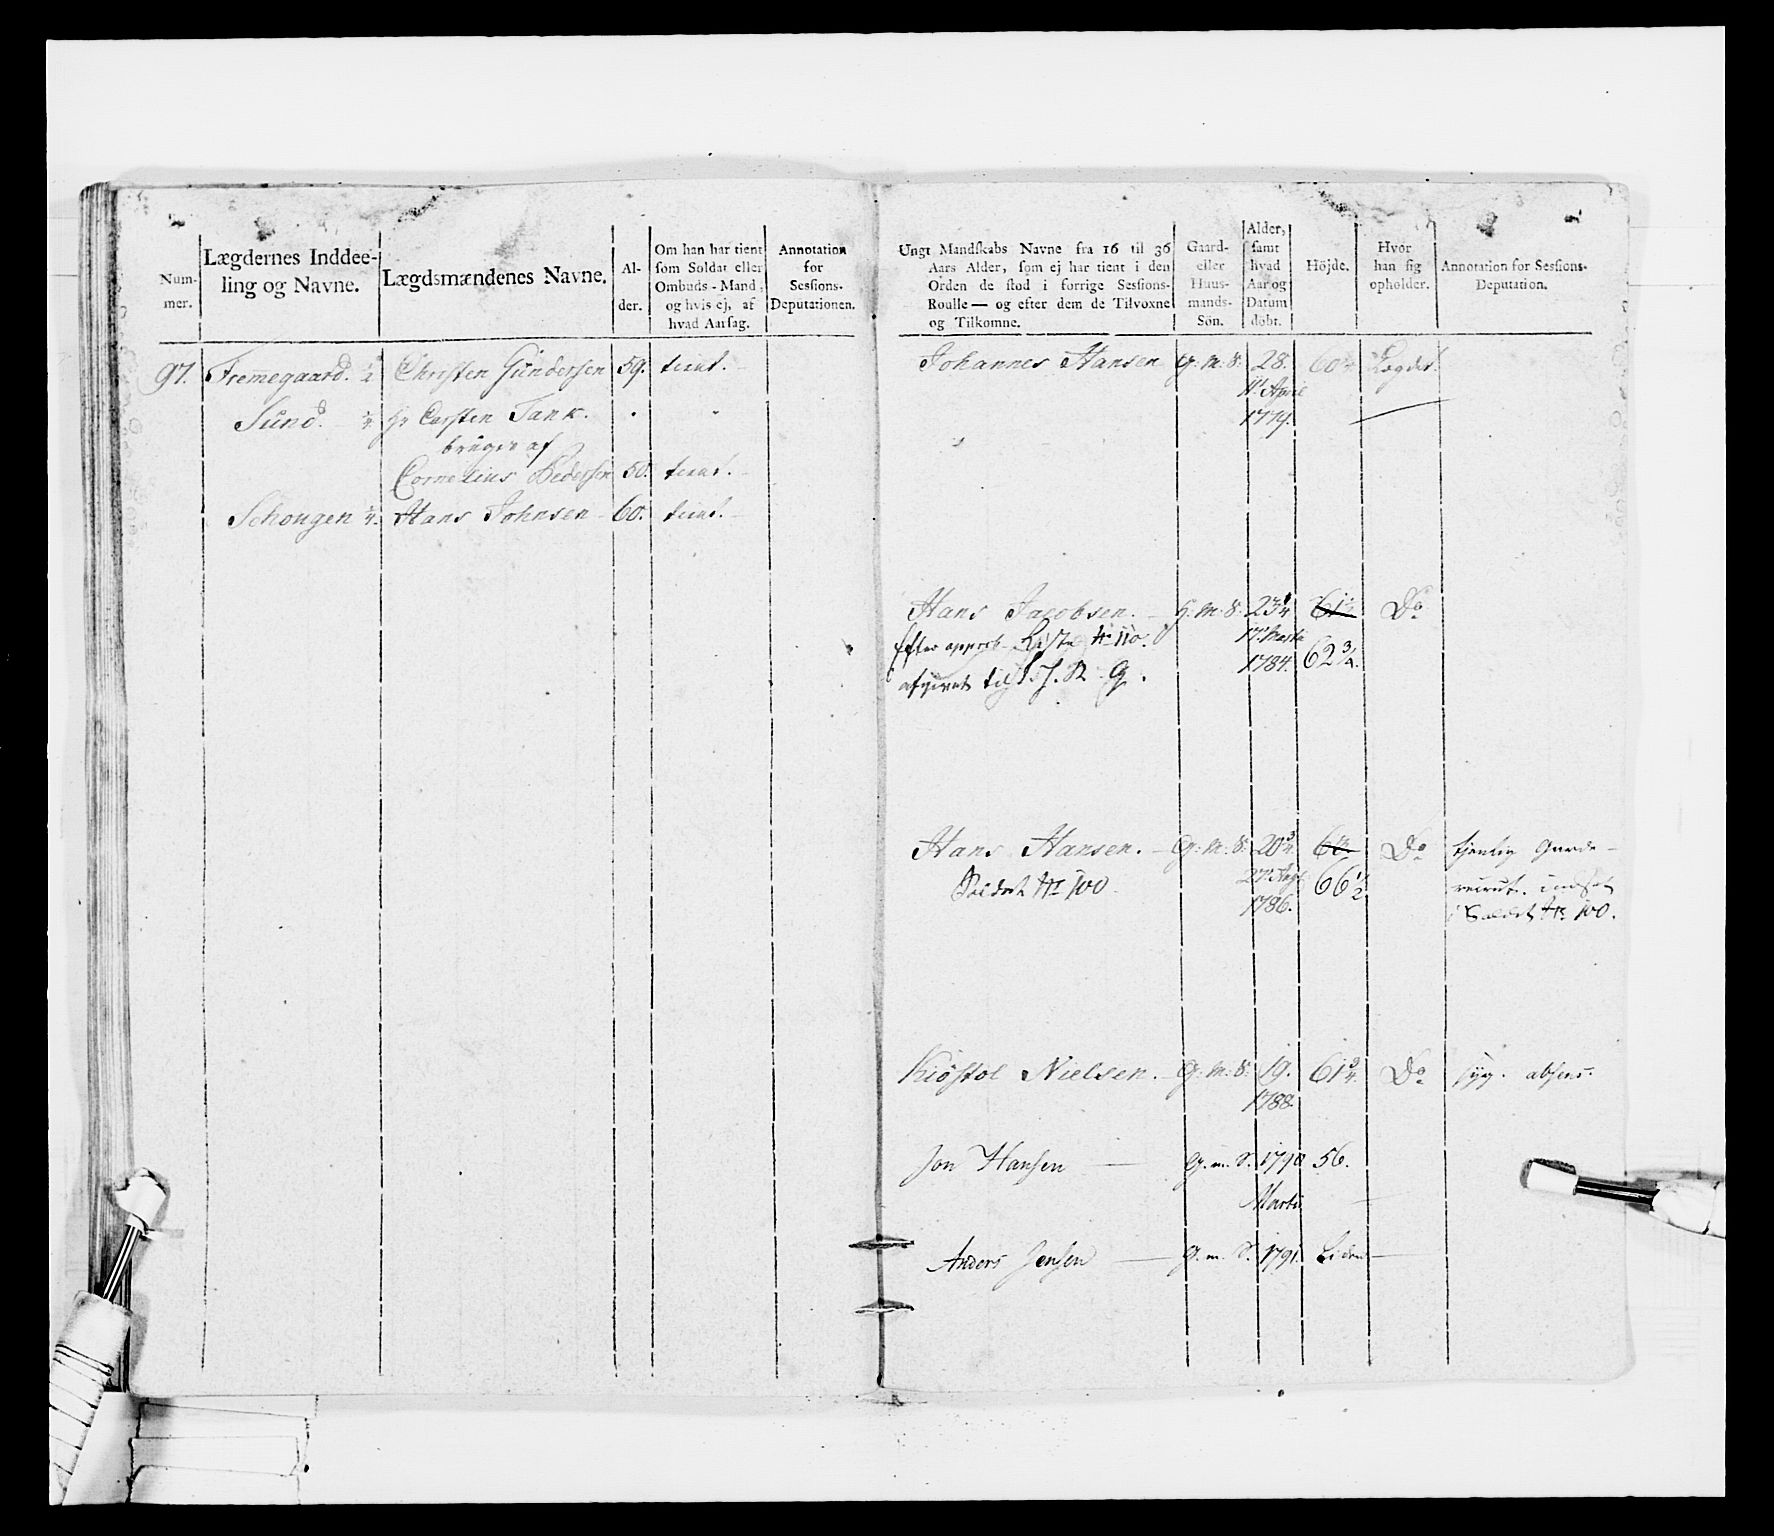 Num-
mer.
Lægdernes Inddee-
ling og Navne.
Lægdsmændenes Navne.
Al-
der.
Om han har tient
som Soldat eller
Ombuds-Mand,
og hvis ej, af
hvad Aarsag.
Annotation
for
Sessions-
Deputationen.
97. Fremegaard. Christen Gündersen 59. tient.
Sund. 1/4 Hr Carsten Tank.
bruges af
Cornelius Pedersen 50. tient.
Schougen 1/4. Hans Johnsen 60. tient.
Ungt Mandskabs Navne fra 16 til 36
Aars Alder, som ej har tient i den
Orden de stod i forrige Sessions-
Roulle — og efter dem de Tilvoxne
og Tilkomne.
Gaard-
eller
Huus-
mands-
Sön.
Alder,
samt
hvad
Aar og
Datum
döbt.
Höjde.
Hvor
han sig
opholder.
Annotation for Sessions-
Deputation.
Johannes Hansen G: M: S: 28. Lægdet.
11 April
1779.
Hans Jacobsen. H: M: S: 23 1/4 Do
Efter approb. Liste No 110. 17 Marti
afgivet til 1784. 62 3/4.
Hans Hansen. G: M: S: 20 3/4 Do tienlig Garde-
Soldat No 100 66 1/2. recrut. indsat
1786. Soldat No 100.
Kiöstol Nielsen. G: M: S: 19. 61 3/4. Do syg. absens.
1788.
Jon Hansen G. m. S. 1790 56.
Marti
Anders Jensen G. m. S. 1791. Liden